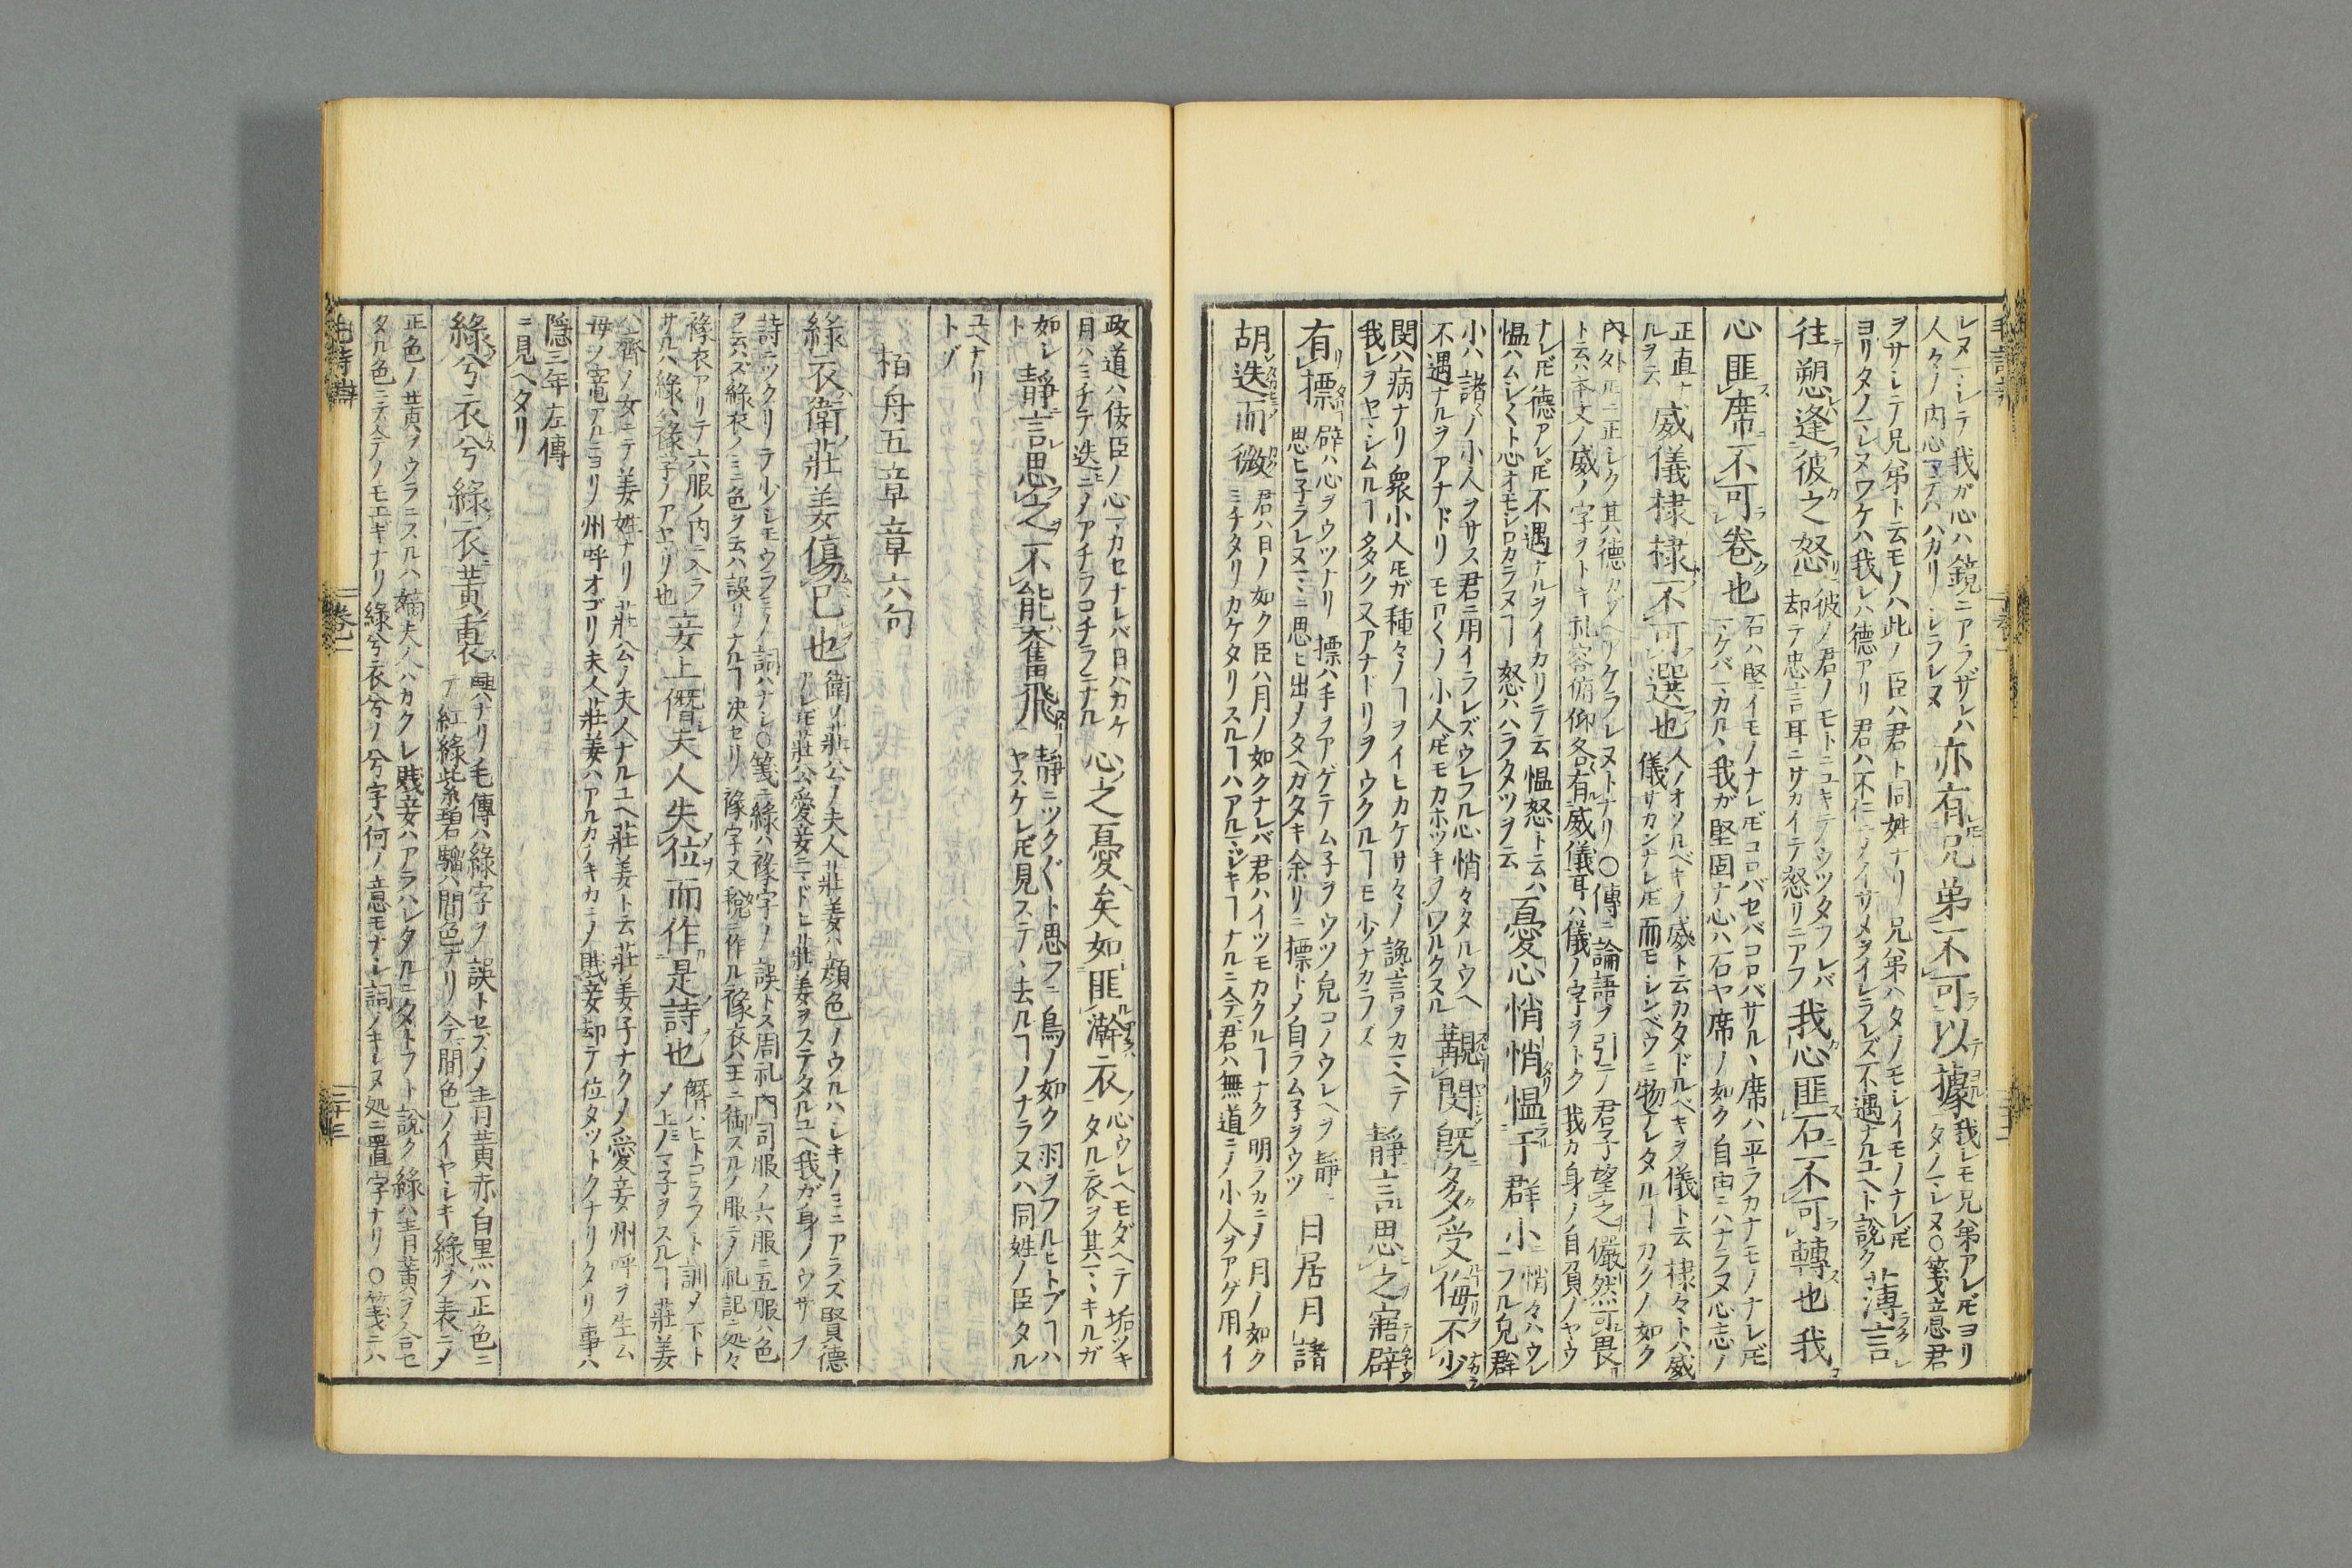 レヌマヽレテ我ガ心ハ鏡ニアラザレハ
人々ノ内心マテハハカリシラレヌ
亦有兄弟不可以據
我レモ兄弟アレ𪜈ヨリ
タノマレヌ○箋立息君
ヲサシテ兄弟ト云モノハ此ノ臣ハ君ト同姓ナリ兄弟ハタノモシイモノナレ𪜈
ヨリタノマレヌワケハ我レハ德アリ君ハ不仁ニ〆イサメヲイレラレズ不遇ナルユヘト說ク
薄言
往愬逢彼之怒
彼ノ君ノモトニユキテウツタフレバ
却テ忠言耳ニサカイテ怒リニアフ
我心匪石不可轉也我
心匪席不可卷也
石ハ堅イモノナレ𪜈コロバセバコロバサルヽ席ハ平ラカナモノナレ𪜈
マケバマカルヽ我ガ堅固ナ心ハ石ヤ席ノ如ク自由ニハナラヌ心志ノ
正直ナ
ルヲ云
威儀棣棣不可選也
人ノオソルベキノ威ト云カタドルベキヲ儀ト云棣々トハ威
儀サカンナレ𪜈而モシンベウニ物ナレタルヿカクノ如ク
內外𪜈ニ正シク其ハ德カゾヘリケラレヌトナリ○傳ニ論語ヲ引テ君子望之儼然可畏
ト云ハ本文ノ威ノ字ヲトキ礼容俯仰各有威儀耳ハ儀ノ字ヲトク我カ身ノ自負ノヤウ
ナレ𪜈德アレ𪜈不遇ナルヲイカリテ云慍怒ト云ハ
慍ハムレ〱ト心オモシロカラヌヿ怒ハハラタツヲ云
憂心悄悄慍于群小
悄々ハウレ
フル皃群
小ハ諸〻ノ小人ヲサス君ニ用イラレズウレフル心悄々タルウヘ
不遇ナルヲアナドリモロ〱ノ小人𪜈モカホツキヲワルクスル
覯閔旣多受侮不少
閔ハ病ナリ衆小人𪜈ガ種々ノヿヲイヒカケサ々ノ讒言ヲカマヘテ
我レヲヤマシムルヿ多ク又アナドリヲウクルヿモ少ナカラズ
靜言思之寤辟
有摽
辟ハ心ヲウツナリ摽ハ手ヲアゲテム子ヲウツ皃コノウレヘヲ靜ニ
思ヒ子ラレヌマヽニ思ヒ出〆タヘガタキ余リニ摽ト〆自ラム子ヲウツ
日居月諸
胡迭而微
君ハ日ノ如ク臣ハ月ノ如クナレバ君ハイツモカクルヿナク明ラカニ〆月ノ如ク
ミチタリカケタリスルヿハアルマジキヿナルニ今君ハ無道ニ〆小人ヲアゲ用イ
政道ハ佞臣ノ心マカセナレバ日ハカケ
月ハミチテ迭ニ〆アチラコチラニナル
心之憂矣如匪澣衣
心ウレヘモダヘテ垢ツキ
タル衣ヲ其マヽキルガ
如シ
ト
靜言思之不能奮飛
靜ニツク〲ト思フニ鳥ノ如ク羽ヲフルヒトブヿハ
ヤスケレ𪜈見ステヽ去ルヿノナラヌハ同姓ノ臣タル
ユヘナリ
トゾ
栢舟五章章六句
綠衣衛莊姜傷己也
衛ノ莊公ノ夫人莊姜ハ顏色ノウルハシキノミニアラズ賢德
アレ𪜈莊公愛妾ニマドヒ莊姜ヲステタルユヘ我ガ身ノウサヲ
詩ニツクリテ少シモウラミノ詞ハナシ○箋ニ綠ハ褖字ノ誤トス周礼內司服ノ六服ニ五服ハ色
ヲ云ハズ綠衣ノミニ色ヲ云ハ誤リナルヿ決セリ褖字又稅ニ作ル褖衣ハ王ニ御スルノ服ニ〆礼記ニ処々
褖衣アリテ六服ノ内ニ入ラ
サルハ綠ハ褖字ノアヤマリ也
妾上僭夫人失位而作是詩也
僭ハヒトコラフト訓〆下ト
〆上ノマ子ヲスルヿ莊姜
ハ齊ノ女ニテ姜姓ナリ莊公ノ夫人ナルユヘ莊姜ト云莊姜子ナク〆愛妾州呼ヲ生ム
母ノ寵アルニヨリ州呼オゴリ夫人莊姜ハアルカナキカニ〆賎妾却テ位タツトクナリタリ事ハ
隱三年左傳
ニ見ヘタリ
綠兮衣兮綠衣黃裏
興ナリ毛傳ハ綠字ヲ誤トセズ〆青黃赤白黒ハ正色ニ
テ紅綠紫碧騮ハ間色ナリ今間色ノイヤシキ綠ヲ表ニ〆
正色ノ黃ヲウラニスルハ嫡夫人ハカクレ賎妾ハアラハレタルニタトフト說ク綠ハ青黃ヲ合セ
タル色ニテ今テノモエギナリ綠兮衣兮ノ兮字ハ何ノ意モナシ詞ノキレヌ処ニ置字ナリ○箋ニハ
毛詩辯
卷二
二十三